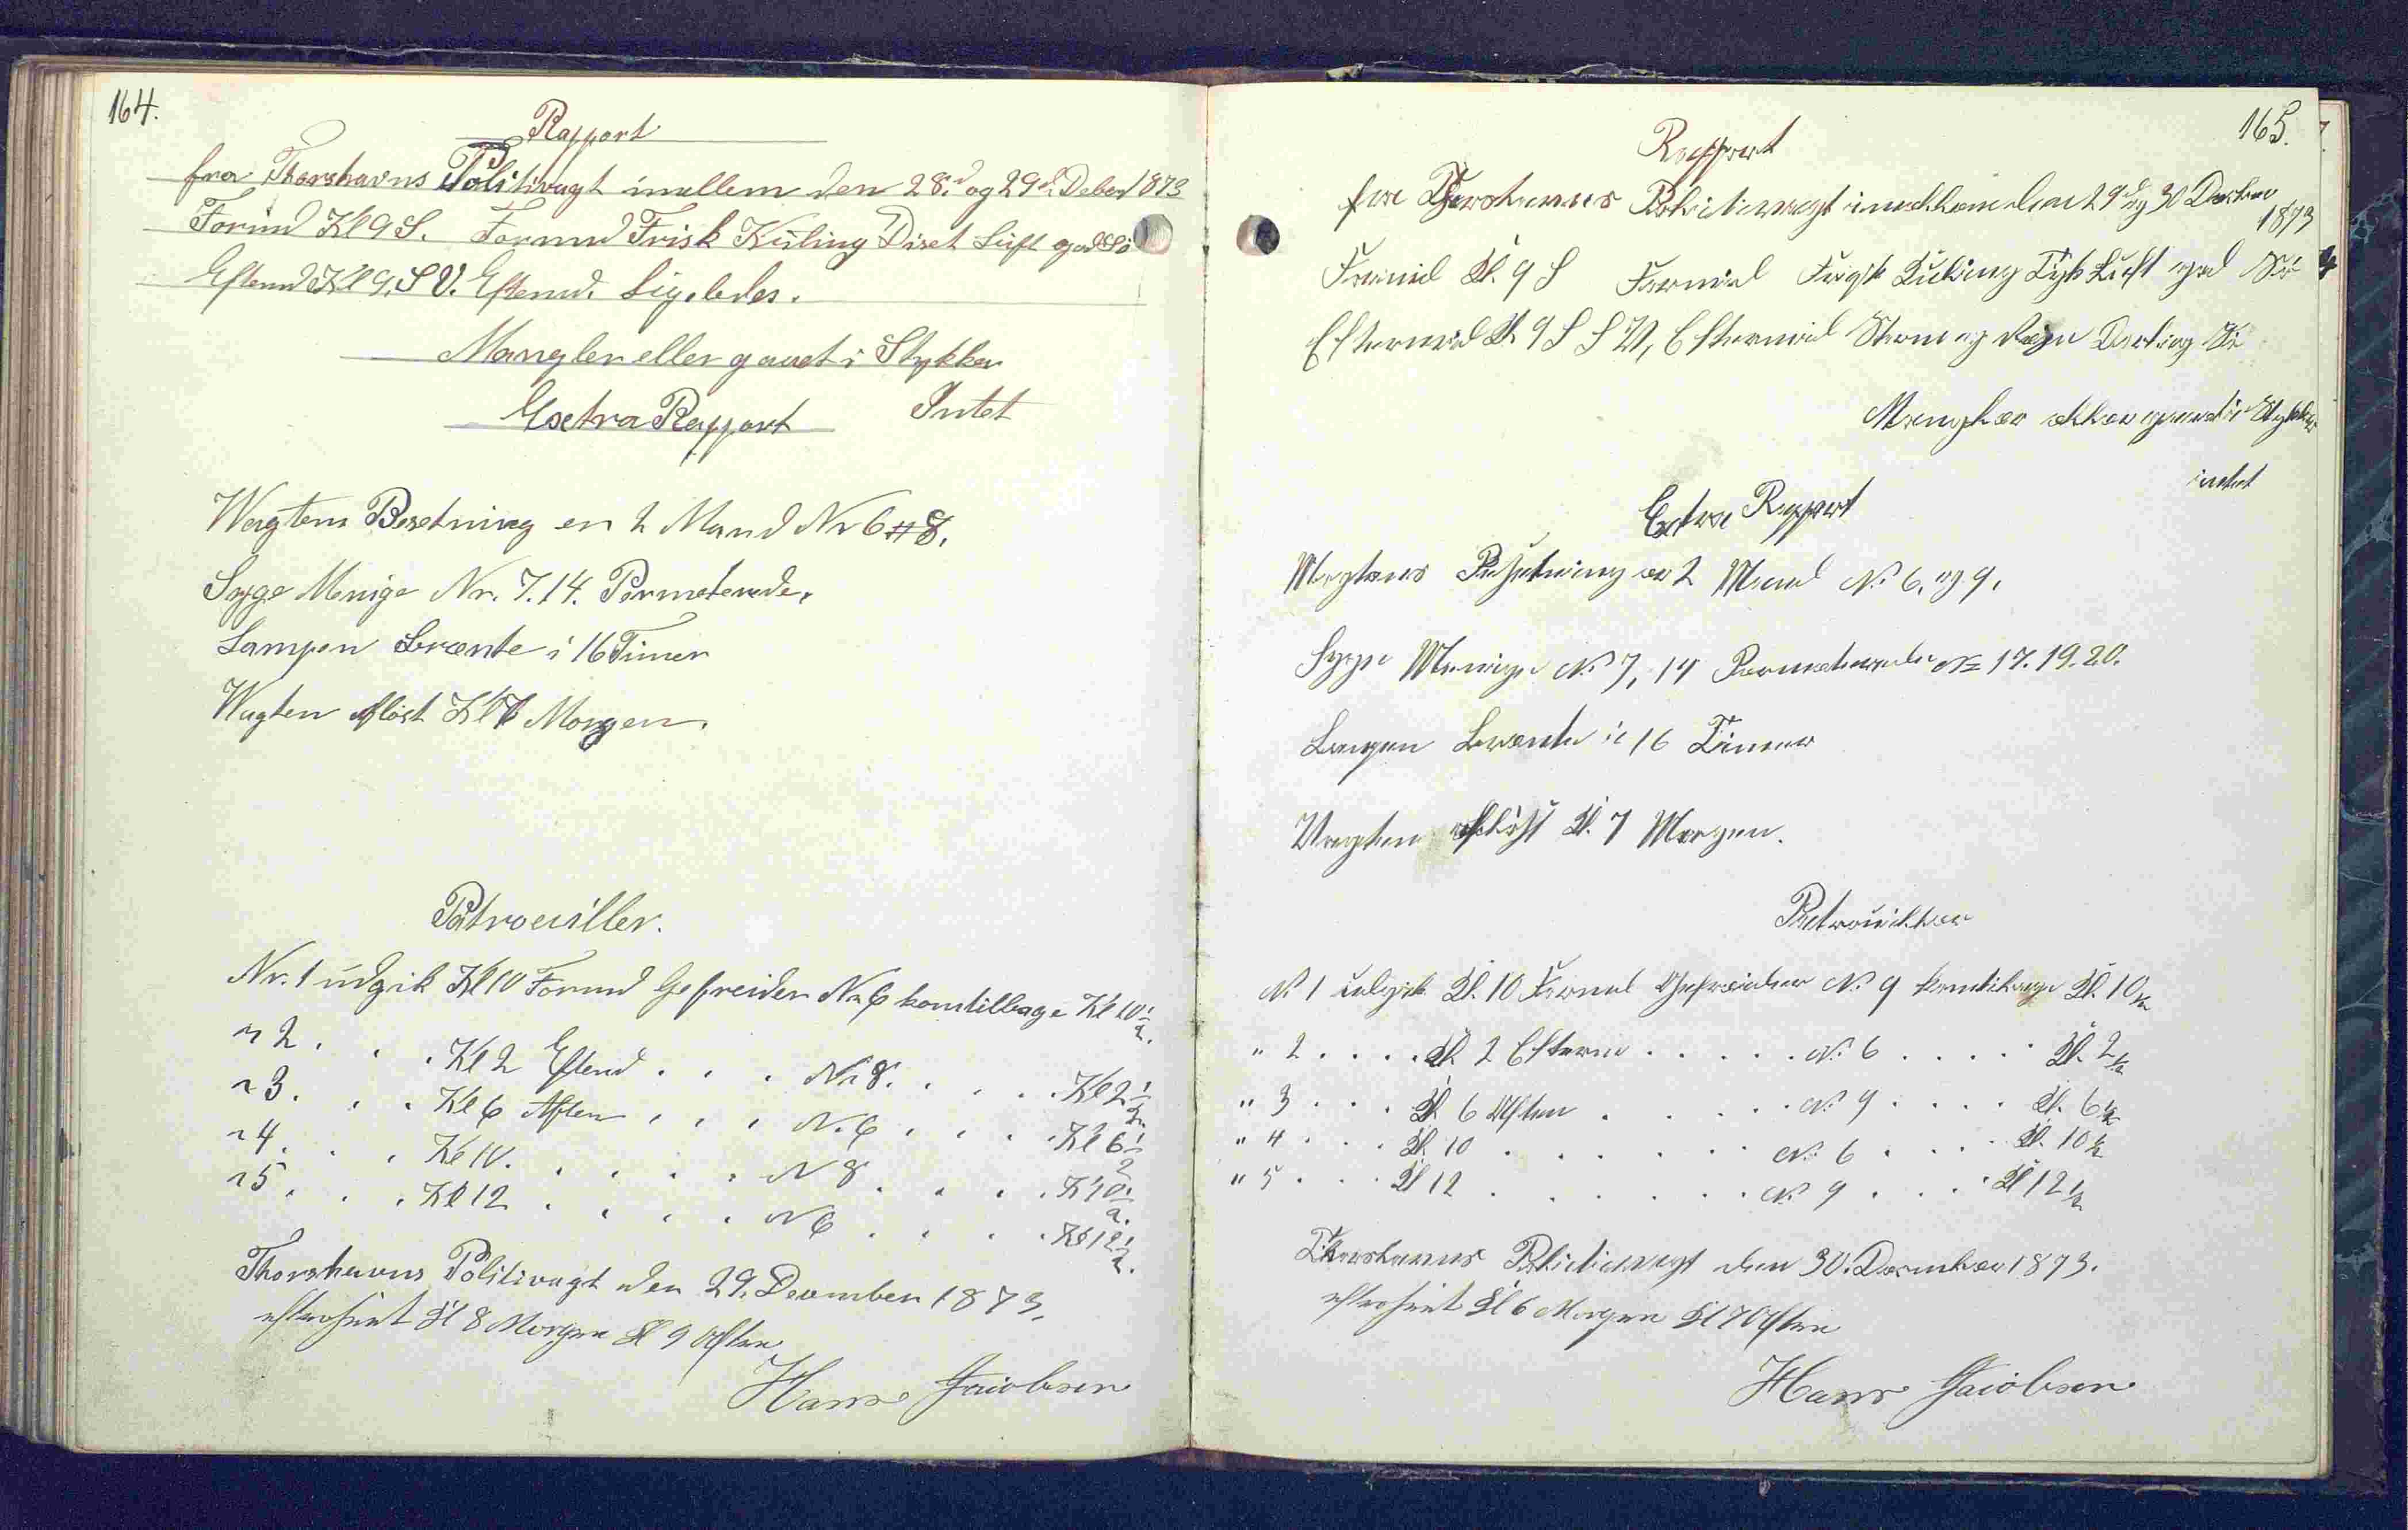 164.
Rapport
fra Thorshavns Politivagt imellem den 28.d og 29d. Deber 1873
Formd Kl 9 S. Formd Frisk Kuling Diset Luft god Sö
Eftemd Kl 9. S V. Eftemd. Ligeledes.
Mangler eller gaaet i Stykker
Intet
Exstra Rapport
Wagtens Besetning er 2 Mand Nr 6 # 8.
Syge Menige Nr. 7. 14. Permeterede.
Lampen Brænte i 16 Timer
Wagten aflöst Kl 7 Morgen.
Patrouiller.
Nr. 1 udgik Kl 10 Formd Gefreider Nr 6 kom tilbage Kl 10 1/2.
" 2 . . . Kl 2 Eftemd . . . Nr 8. . . . Kl 2 1/2
" 3. . . . Kl 6 Aften . . . N. 6 . . . Kl 6 1/2
" 4. . . . Kl 10. . . . . N 8 . . . . Kl 10 1/2.
" 5. . . . Kl 12 . . . . N 6 . . . . Kl 12 1/2.
Thorshavns Politivagt den 29. December 1873.
efterseet Kl 8 Morgen Kl 9 Aften
Hans Jacobsen
165.
Rapport
fra Thorshavns Politivagt imellem den 29d og 30 December
1873
Formid Kl. 9 S Formid Frisk Kuling Tyk Luft god Sö
Eftermid Kl 9 S S V, Eftermid Storm og Regn Daarlig Sö
Mangler eller gaaet i Stykker
intet
Extra Rapport
Wagtens Besetning er 2 Mand No 6. og 9.
Syge Menige No 7, 14 Permeterede No 17. 19. 20.
Lampen Brænte i 16 Timer
Vagten aflöst Kl. 7 Morgen.
Patrouiller
No 1 udgik Kl. 10 Formd Gefreider No 9 kom tilbage Kl. 10 1/2
" 2 . . . . Kl. 2 Efterm . . . . . No 6 . . . . . Kl. 2 1/2
" 3 . . . . Kl. 6 Aften . . . . . No 9 . . . . Kl. 6 1/2
" 4 . . . Kl. 10 . . . . . . No 6 . . . . Kl. 10 1/2
" 5 . . . Kl 12 . . . . . . No 9 . . . . Kl 12 1/2
Thorshavns Politivagt den 30. December 1873.
efterseet Kl 6 Morgen Kl 7 Aften
Hans Jacobsen